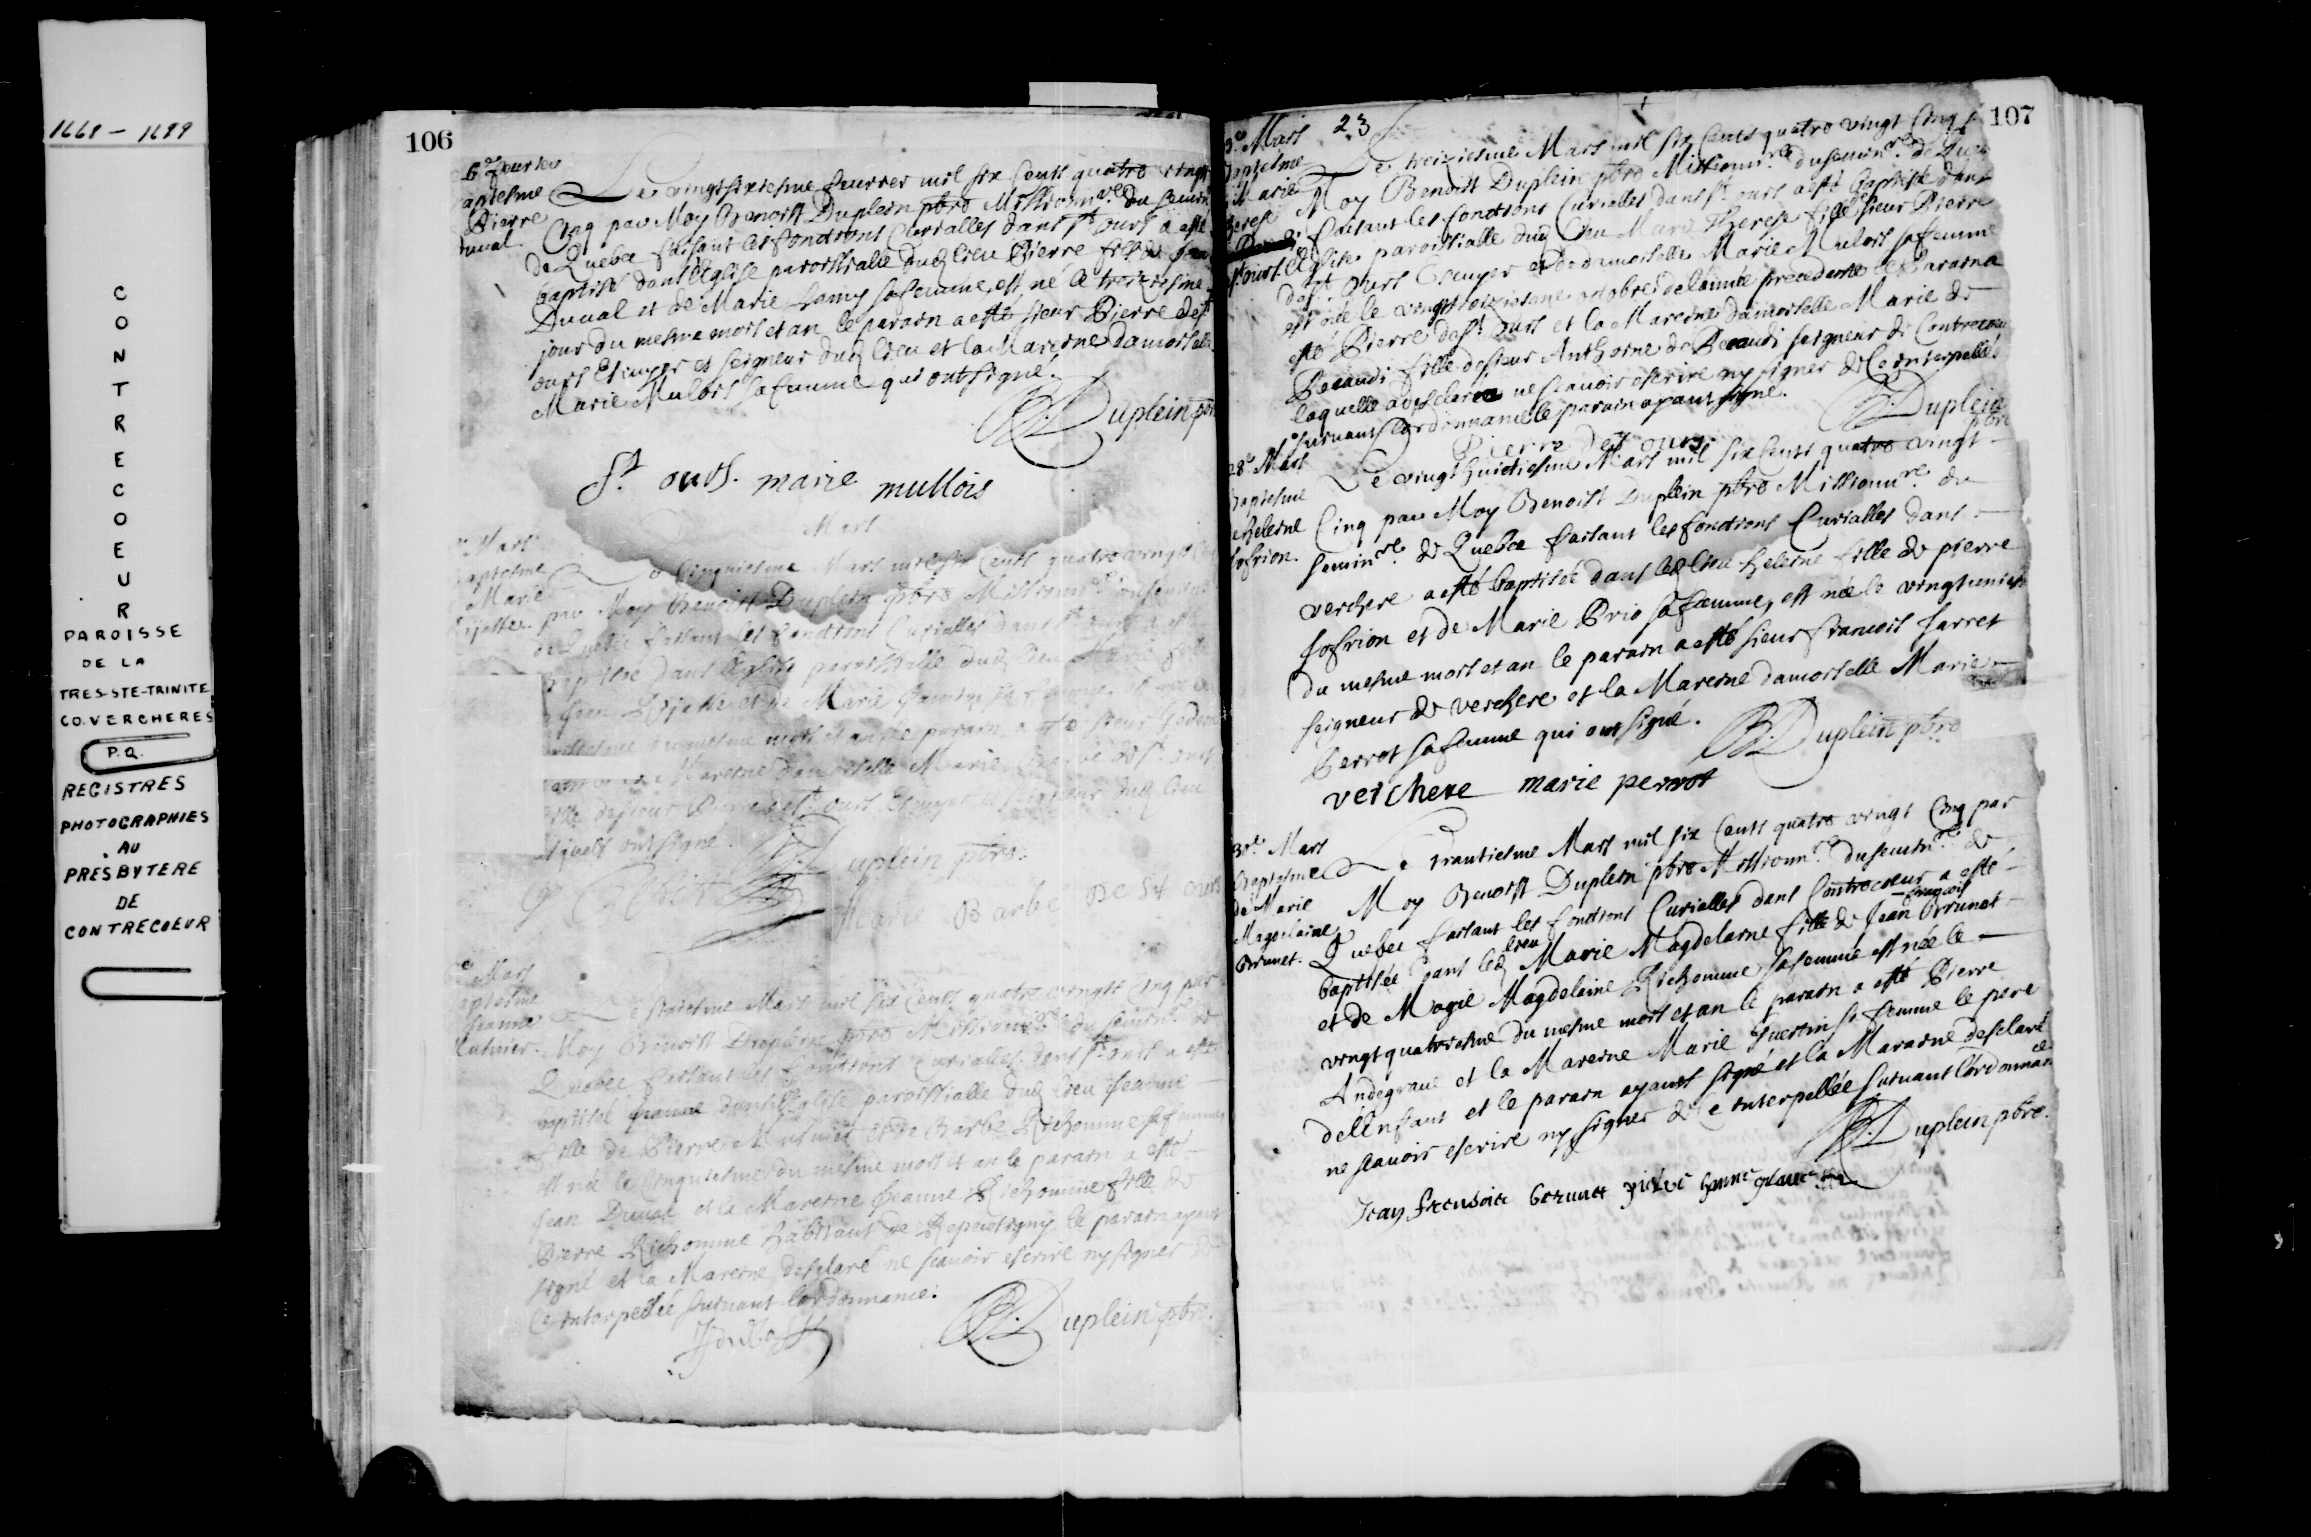 1668 - 1699
C
O
N
T
R
E
C
O
E
U
R
PAROISSE
DE LA
TRES-STE-TRINITE
CO. VERCHERES
P.Q.
REGISTRES
PHOTOGRAPHIES
AU
PRESBYTERE
DE
CONTRECOEUR
106
feurier
aptesme
Pierre
duual
Le vingtsixiesme feurier mil six Cents quatre vingt
Cinq par Moy Benoist Duplein pbre Missionnre. du semin
de Quebec faisant les fonctions Curialles dans st. ours a esté
baptisé dans l'Eglise paroissialle dudt lieu Pierre fils de Jean
Duual et de Marie Lamy sa femme, est né le treiziesme
jour du mesme mois et an le parain a esté sieur Pierre de st.
ours Escuyer et seigneur dudt lieu et la Mareine damoiselle
Marie Mulois sa femme qui ont signé.
B. Duplein pbre
St. ours. marie mullois
Mars
Mars
aptesme
Marie
Cinquiesme Mars mil six Cents quatre vingt
par Moy Benoist Duplein pbre Missionnre. du semin
de Quebec faisant les fonctions Curialles dans st. ours a esté
baptisée dans l'Eglise paroissialle dudt lieu Marie fille
Jean et de Marie
mesme mois et an le parain a esté sieur
Mareine damoiselle Marie Barbe de st. ours
fille de sieur Pierre de st. ours Escuyer et seigneur dudt lieu
lesquels ont signé.
B. Duplein pbre.
Marie Barbe De St ours
Mars
aptesme
Jeanne
Le sixiesme Mars mil six Cents quatre vingts Cinq par
Moy Benoist Duplein pbre Missionnre. du seminre. de
Quebec faisant les fonctions Curialles dans st. ours a esté
baptisé Jeanne dans l'Eglise paroissialle dudt lieu Jeanne
fille de Pierre et de Barbe Richomme sa femme
est née le Cinquiesme du mesme mois et an le parain a esté
Jean Duual et la Mareine Jeanne Richomme fille de
Pierre Richomme habitant de Repentigny le parain ayant
signé et la Mareine desclaré ne scauoir escrire ny signer de
Ce interpellée suiuant l'ordonnance.
B. Duplein pbre.
107
23
3e. Mars
Baptesme
Marie
Therese
st. ours.
Le treiziesme Mars mil six Cents quatre vingt Cinq
Moy Benoist Duplein pbre Missionnre. du seminre. de Que
faisant les fonctions Curialles dans st. ours a esté baptisée dans
l'Eglise paroissialle dudt lieu Marie Therese fille sieur Pierre
de st. ours Escuyer et de damoiselle Marie Mulois sa femme
est née le vingt troiziesme octobre de l'année precedente le Parain a
esté Pierre de st. ours et la Mareine damoiselle Marie de
Pecaudi fille de sieur Anthoine de Pecaudi seigneur de Contrecoeur
laquelle a desclaré ne scauoir escrire ny signer de Ce interpellée
suiuant l'ordonnance le parain ayant signé.
B. Duplein
pbre
Pierre de st ours
28e. Mars
Baptesme
Le vingt huictiesme Mars mil six Cents quatre vingt
Cinq par Moy Benoist Duplein pbre Missionnre. du
seminre. de Quebec faisant les fonctions Curialles dans
verchere a esté baptisée dans ledt lieu helesne fille de pierre
Jofrion et de Marie Briò sa femme, est née le vingtuniesme
du mesme mois et an le parain a esté sieur francois Jarret
seigneur de verchere et la Mareine damoiselle Marie
Perrot sa femme qui ont signé.
B. Duplein pbre
verchere marie perrot
30e. Mars
Baptesme
de Marie
Magdelaine
Brunet.
Le trantiesme Mars mil six Cents quatre vingt Cinq par
Moy Benoist Duplein pbre Missionnre. du seminre. de
Quebec faisant les fonctions Curialles dans Contrecoeur a esté
baptisée dans ledt lieu Marie Magdelaine fille de Jean francois Brunet
et de Marie Magdelaine Richomme sa femme est née le
vingtquatriesme du mesme mois et an le parain a esté Pierre
Andegraue et la Mareine Marie Guertin sa femme le pere
de l'Enfant et le parain ayants signé et la Maraine desclaré
ne scauoir escrire ny signer de Ce interpellée suiuant l'ordonnance
B. Duplein pbre.
Jean francois brunet